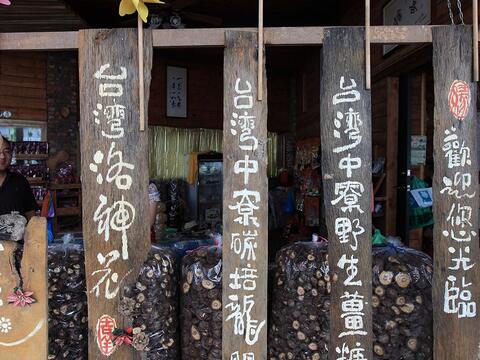 台灣洛神花
台灣中寮碳培龍眼
台灣中寮野生薑糖
歡迎您光臨